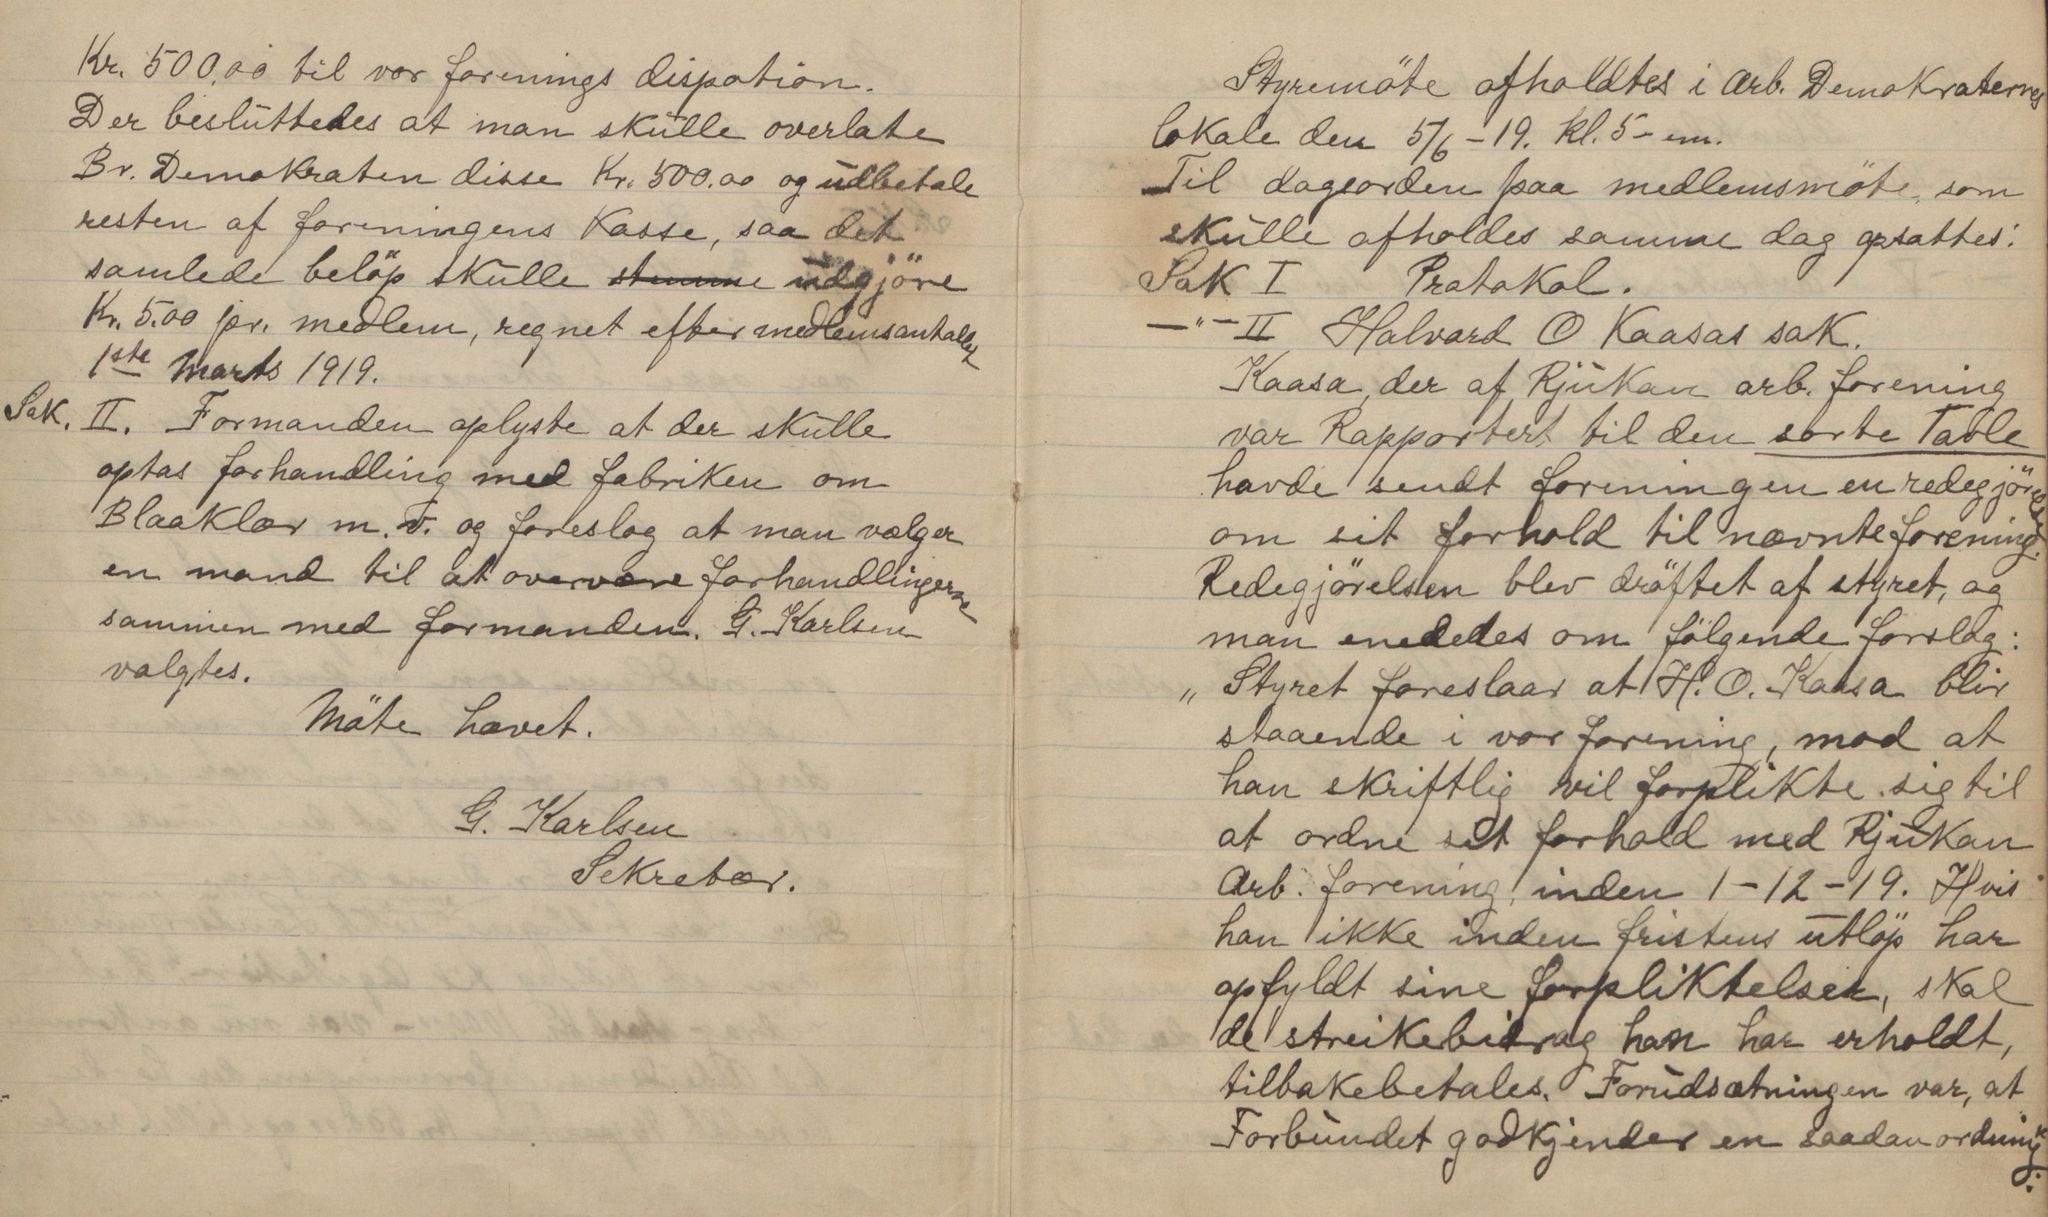 Kr. 500,00 til vor forenings dispotion.
Der besluttedes at man skulle overlate
Br. Demokraten disse Kr. 500.00 og udbetale
resten af foreningens Kasse, saa det
samlede beløp skulle stemme udgjöre
Kr. 5.00 pr. medlem, regnet efter medlemsantallet
1ste Marts 1919.
Sak. II. Formanden oplyste at der skulle
optas forhandling med fabriken om
Blaaklær m.v. og foreslog at man vælger
en mand til at overvære forhandlingerne
sammen med formanden. G. Karlsen
valgtes.
Möte hævet.
G. Karlsen
Sekretær.
Styremöte afholdtes i Arb. Demokraternes
lokale den 5/6-19. Kl. 5- em.
Til dagsorden paa medlemsmöte, som
skulle afholdes samme dag opsattes:
Sak I Protokol.
—"— II Halvard O Kaasas sak.
Kaasa, der af Rjukan arb. forening
var Rapportert til den sorte Table
havde sendt foreningen en redegjörelse
om sit forhold til nævnte forening.
Redegjörelsen blev dröftet af styret, og
man enededes om fölgende forslag:
„ Styret foreslaar at H. O. Kaasa blir
staaende i vor forening, mod at
han skriftlig vil forplikte sig til
at ordne sit forhold med Rjukan
Arb. forening inden 1-12-19. Hvis
han ikke inden fristens utløp har
opfyldt sine forpliktelser, skal
de streikebidrag han har erholdt,
tilbakebetales. Forudsætningen var, at
Forbundet godkjender en saadan ordning".